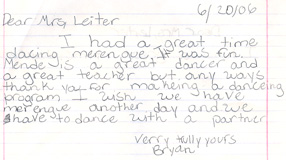 6/20/06
Dear Mrs, Leiter
I had a great time
placing merengue, It was fun.
Mende is a great dancer and
a great teacher but any ways
thank you for makeing a danceing
program I wish we have
merengue another day and we
have to dance with a partner
Verry trully yours
Bryan